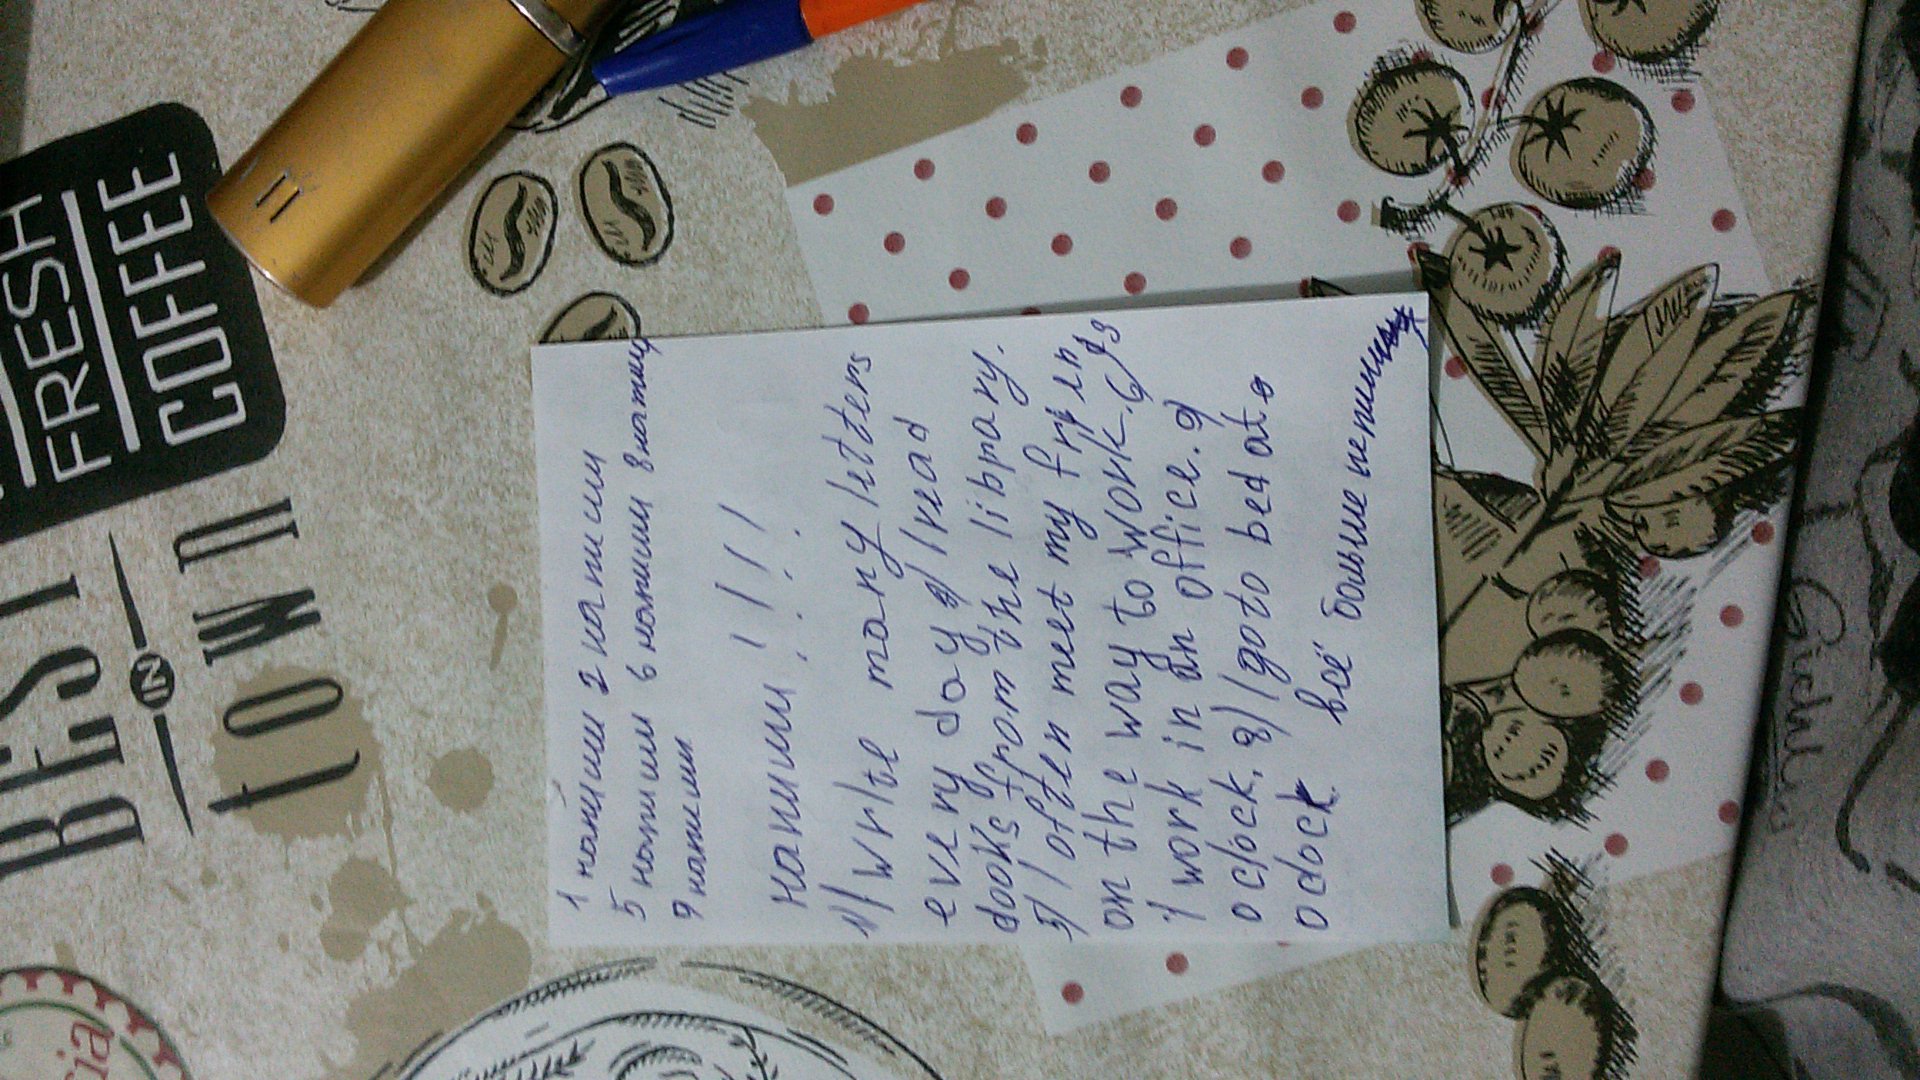 FRESH
COFFEE
BEST
IN
TOWN
1 напиши 2 напиши
5 напиши 6 напиши 8 напиши
9 напиши
напиши ! ! ! !
1) I write many letters
every day 3) I read
books from the library.
5) I often meet my frien
on the way to work. 6) 
I work in an office. 9)
o clock. 8) I go to bed at
o clock
всё больше не пиши